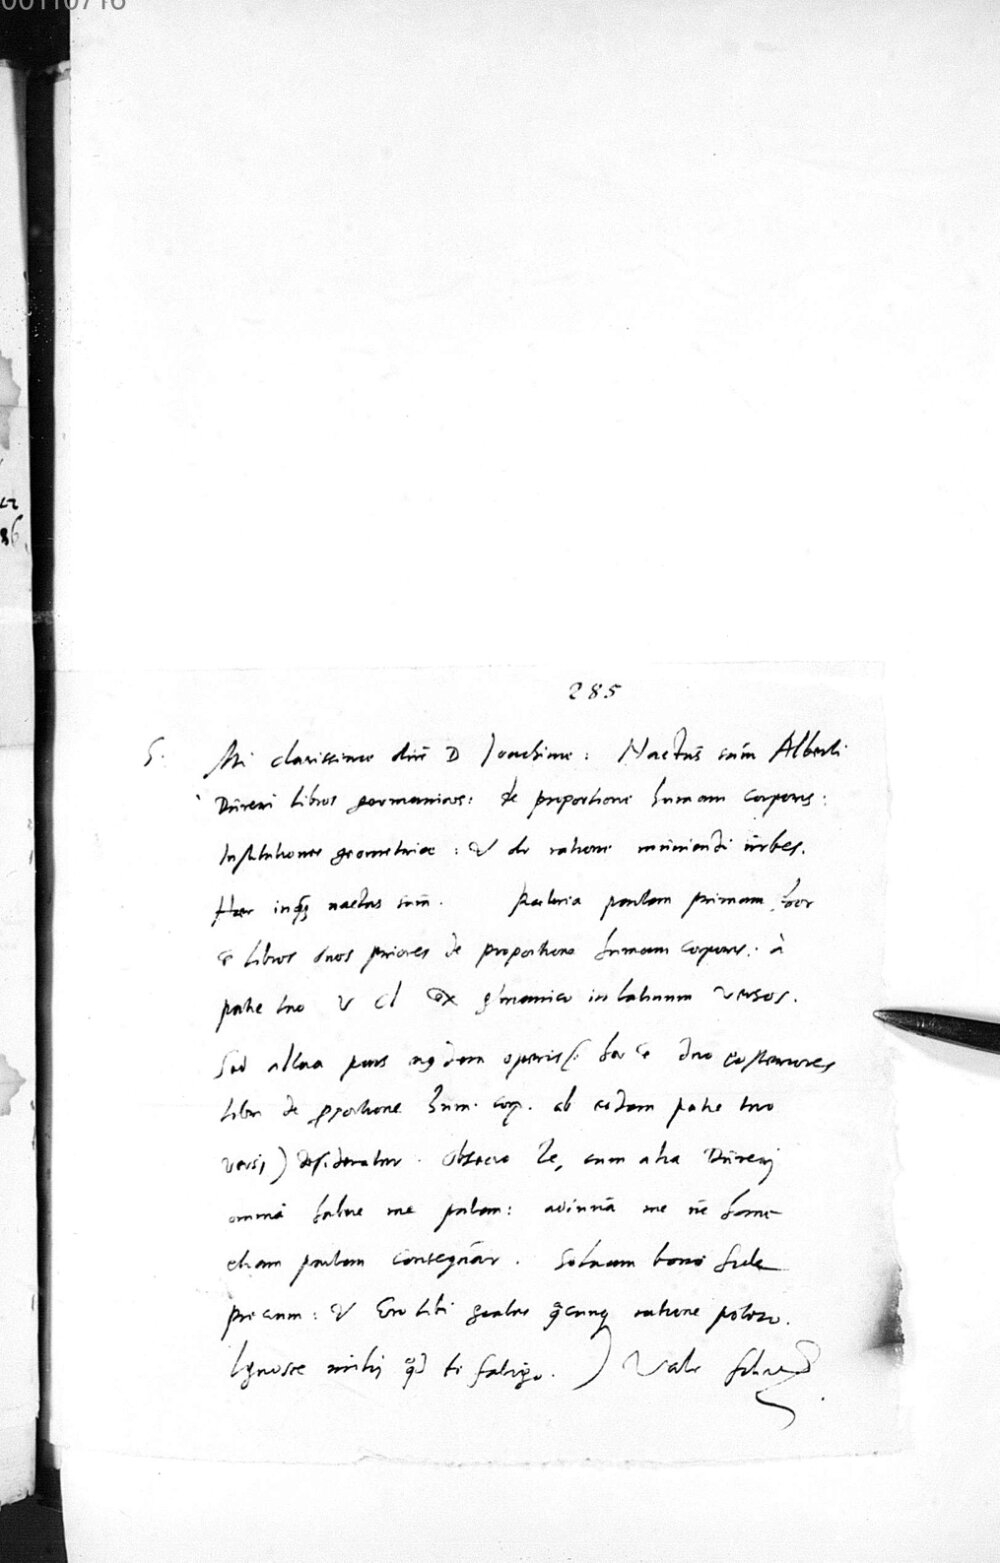 00110716
285
S. Mi clarissime dñe D Joachime: Nactus sum Alberti
Düreri libros germanicos: de proportione humani corporis:
Institutiones geometriae: & de ratione muniendi urbes.
Haec inq̃ nactus sum. partem primam, hoc
ẽ libros duos priores de proportione humani corporis: à
patre tuo V Cl ex germanico in latinum versos.
Sed altera pars eiusdem operis (hoc ẽ duo posteriores
libri de p̱portione hum. corp. ab eodem patre tuo
versi) desideratur. Obsecro te, cum alia Düreri
omnia me adiuua me
etiam partem consequar. Soluam bona fide
precium: & ero tibi gratus q̃cunq ratione potero.
Ignosce mihi q̃d te fatigo. ) Vale